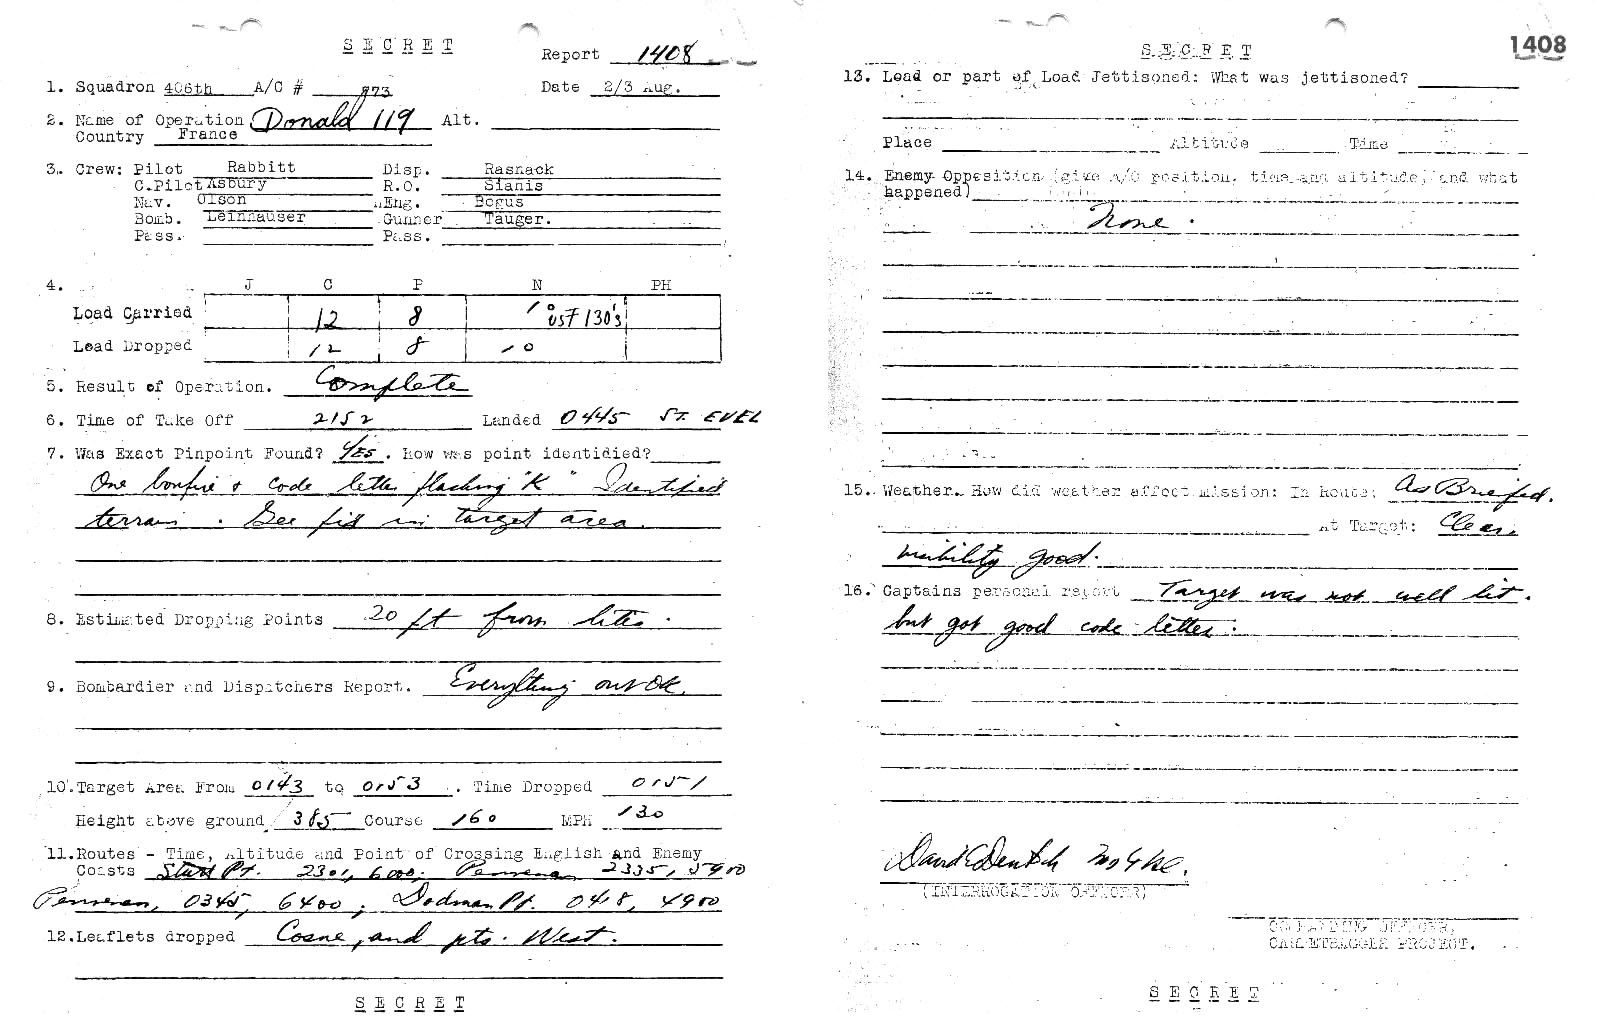 S E C R E T
Report 1408
1. Squadron 406th A/C # 873 Date 2/3 Aug.
2. Name of Operation Donald 119 Alt.
Country France
3. Crew: Pilot Rabbitt Disp. Rasnack
C.Pilot Asbury R.O. Sianis
Nav. Olson Eng. Bogus
Bomb. Leinhauser Gunner Tauger.
Pass. Pass.
4. J C P N PH
Load Carried 12 8 10 USF 130's
Load Dropped 12 8 10
5. Result of Operation. Complete
6. Time of Take Off 2152 Landed 0445 ST. EVEL
7. Was Exact Pinpoint Found? YES. How was point identidied?
One bonfire & code letter flashing "K" Identified
terrain. See fid in target area.
8. Estimated Dropping Points 20 ft from lites.
9. Bombardier and Dispatchers Report. Everything out OK.
10. Target Area From 0143 to 0153. Time Dropped 0151
Height above ground 385 Course 160 MPH 130
11. Routes - Time, Altitude and Point of Crossing English and Enemy
Coasts Start Pt. 2301, 6000; Penvenan 2335, 5900
Penvenan, 0345, 6400; Dodman Pt. 0418, 4900
12. Leaflets dropped Cosne, and pts. West.
S E C R E T
S E C R E T
1408
13. Load or part of Load Jettisoned: What was jettisoned?
Place Altitude Time
14. Enemy Opposition (give A/C position, time and altitude, and what
happened)
None.
15. Weather. How did weather affect mission: In Route: As Briefed.
At Target: Clear,
visibility good.
16. Captains personal report Target was not well lit.
but got good code letter.
David C Deutsch
(INTERROGATION OFFICER)
COMMANDING OFFICER,
CARPETBAGGER PROJECT.
S E C R E T